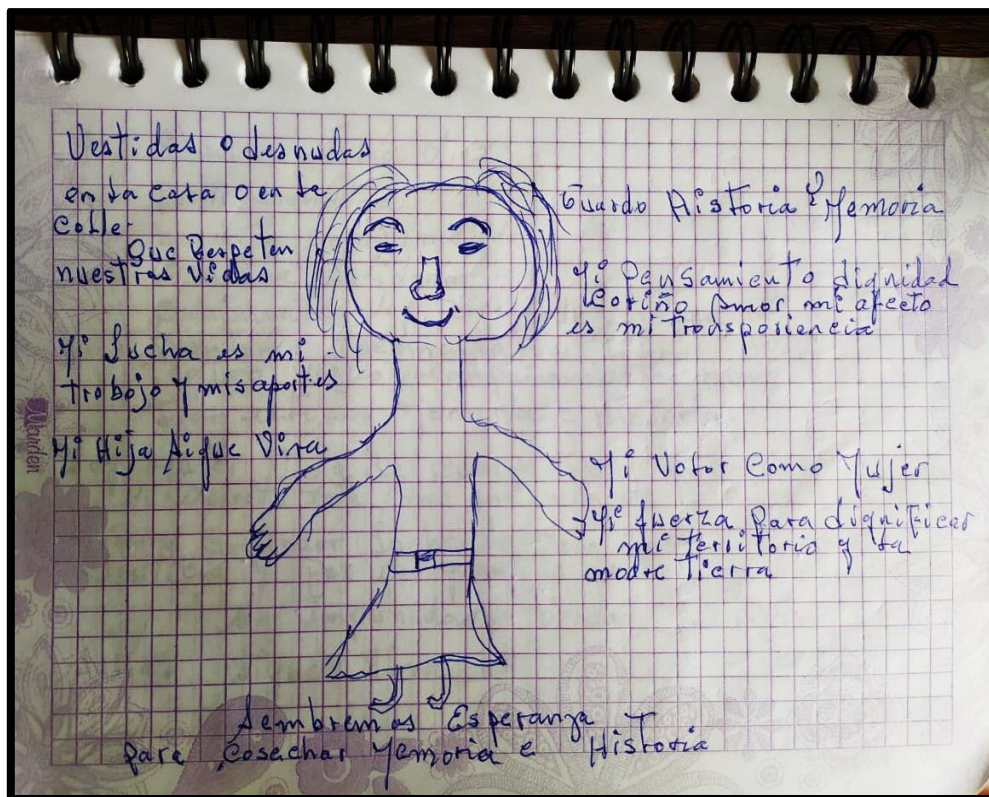 Vestidas o desnudas
en la casa o en la
Calle.
Que Respeten
nuestras Vidas
Mi Lucha es mi
trabajo y mis aportes
Mi Hija Sigue Viva
Guardo Historia y Memoria
Mi Pensamiento dignidad
Cariño Amor mi afecto
es mi transpariencia
Mi Valor Como Mujer
Mi fuerza para dignificar
mi Territorio y la
madre Tierra
Sembremos Esperanza
para Cosechar Memoria e Historia
Marden